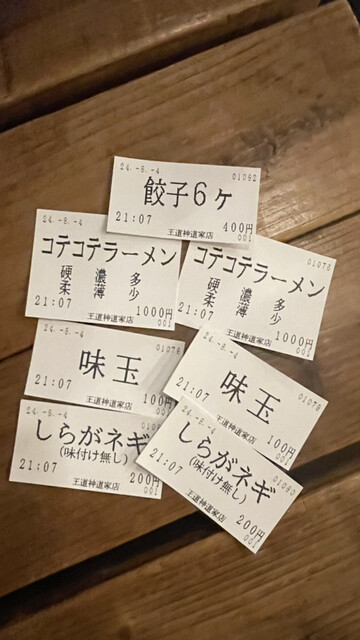 24.-8.-4 01082
餃子6ヶ
21:07 400円
王道神道家店 001
24.-8.-4
コテコテラーメン
硬 濃 多
柔 薄 少
21:07 1000円
王道神道家店 001
01076
コテコテラーメン
硬 濃 多
柔 薄 少
21:07 1000円
王道神道家店 001
24.-8.-4 01078
味玉
21:07 100円
王道神道家店 001
24.-8.-4 01079
味玉
21:07 100円
王道神道家店
24.-8.-4
しらがネギ
(味付け無し)
21:07 200円
王道神道家店 001
01080
しらがネギ
(味付け無し)
21:07 200円
王道神道家店 001